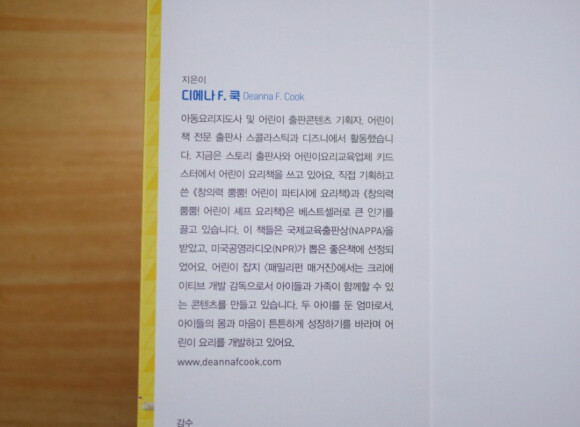 지은이
디에나 F. 쿡 Deanna F. Cook
아동요리지도사 및 어린이 출판콘텐츠 기획자. 어린이
책 전문 출판사 스콜라스틱과 디즈니에서 활동했습니
다. 지금은 스토리 출판사와 어린이요리교육업체 키드
스터에서 어린이 요리책을 쓰고 있어요. 직접 기획하고
쓴 《창의력 뿜뿜! 어린이 파티시에 요리책》과 《창의력
뿜뿜! 어린이 셰프 요리책》은 베스트셀러로 큰 인기를
끌고 있습니다. 이 책들은 국제교육출판상(NAPPA)을
받았고, 미국공영라디오(NPR)가 뽑은 좋은책에 선정되
었어요. 어린이 잡지 〈패밀리펀 매거진〉에서는 크리에
이티브 개발 감독으로서 아이들과 가족이 함께할 수 있
는 콘텐츠를 만들고 있습니다. 두 아이를 둔 엄마로서,
아이들의 몸과 마음이 튼튼하게 성장하기를 바라며 어
린이 요리를 개발하고 있어요.
www.deannafcook.com
감수